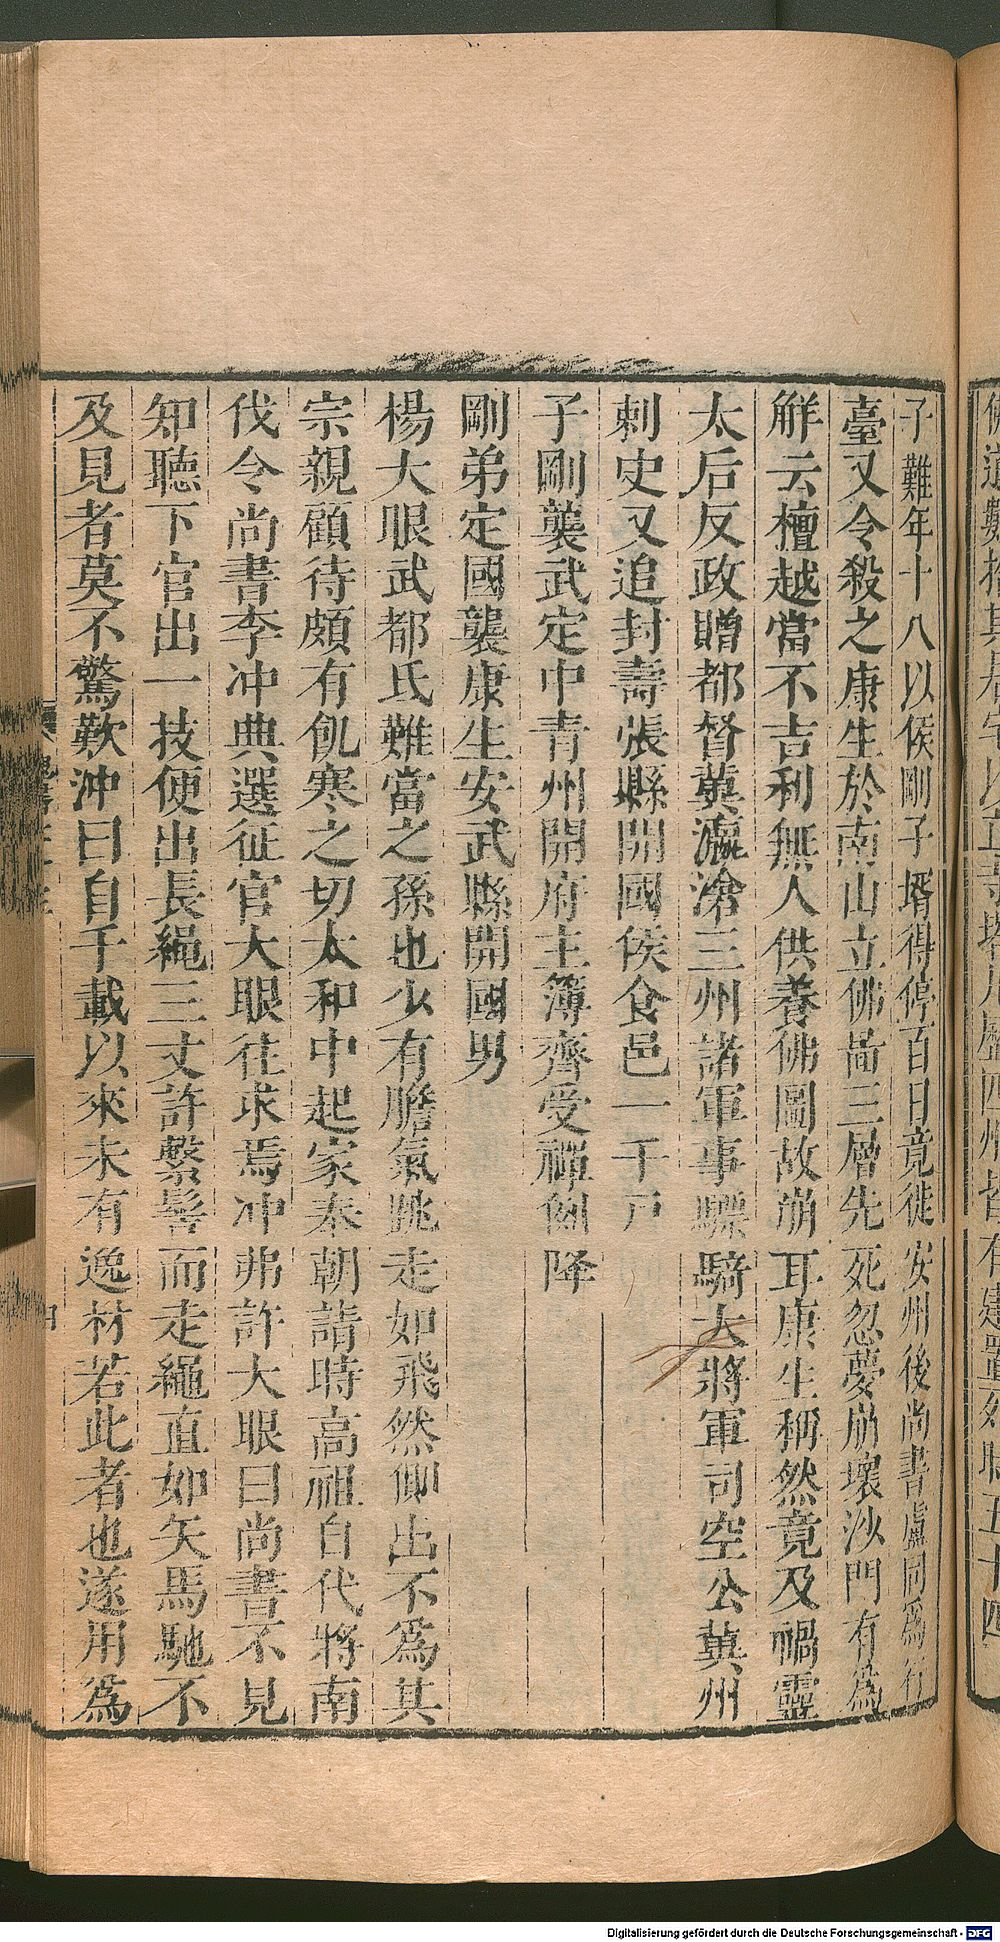 子難年十八以侯剛子壻得停百日竟徙安州後尚書盧同爲行
臺又令殺之康生於南山立佛啚三層先死忽夢崩壞沙門有爲
解云檀越當不吉利無人供養佛圖故崩耳康生稱然竟及禍靈
太后反政贈都督冀瀛滄三州諸軍事驃騎大將軍司空公冀州
刺史又追封壽張縣開國侯食邑一千戶
子剛襲武定中青州開府主簿齊受禪例降
剛弟定國襲康生安武縣開國男
楊大眼武都氐難當之孫也少有膽氣跳走如飛然側出不爲其
宗親顧待頗有飢寒之切太和中起家奉朝請時高祖自代將南
伐令尚書李冲典選征官大眼往求焉冲弗許大眼曰尚書不見
知聽下官出一技便出長繩三丈許繫髻而走繩直如矢馬馳不
及見者莫不驚歎沖曰自千載以來未有逸材若此者也遂用爲
Digitalisierung gefördert durch die Deutsche Forschungsgemeinschaft - DFG